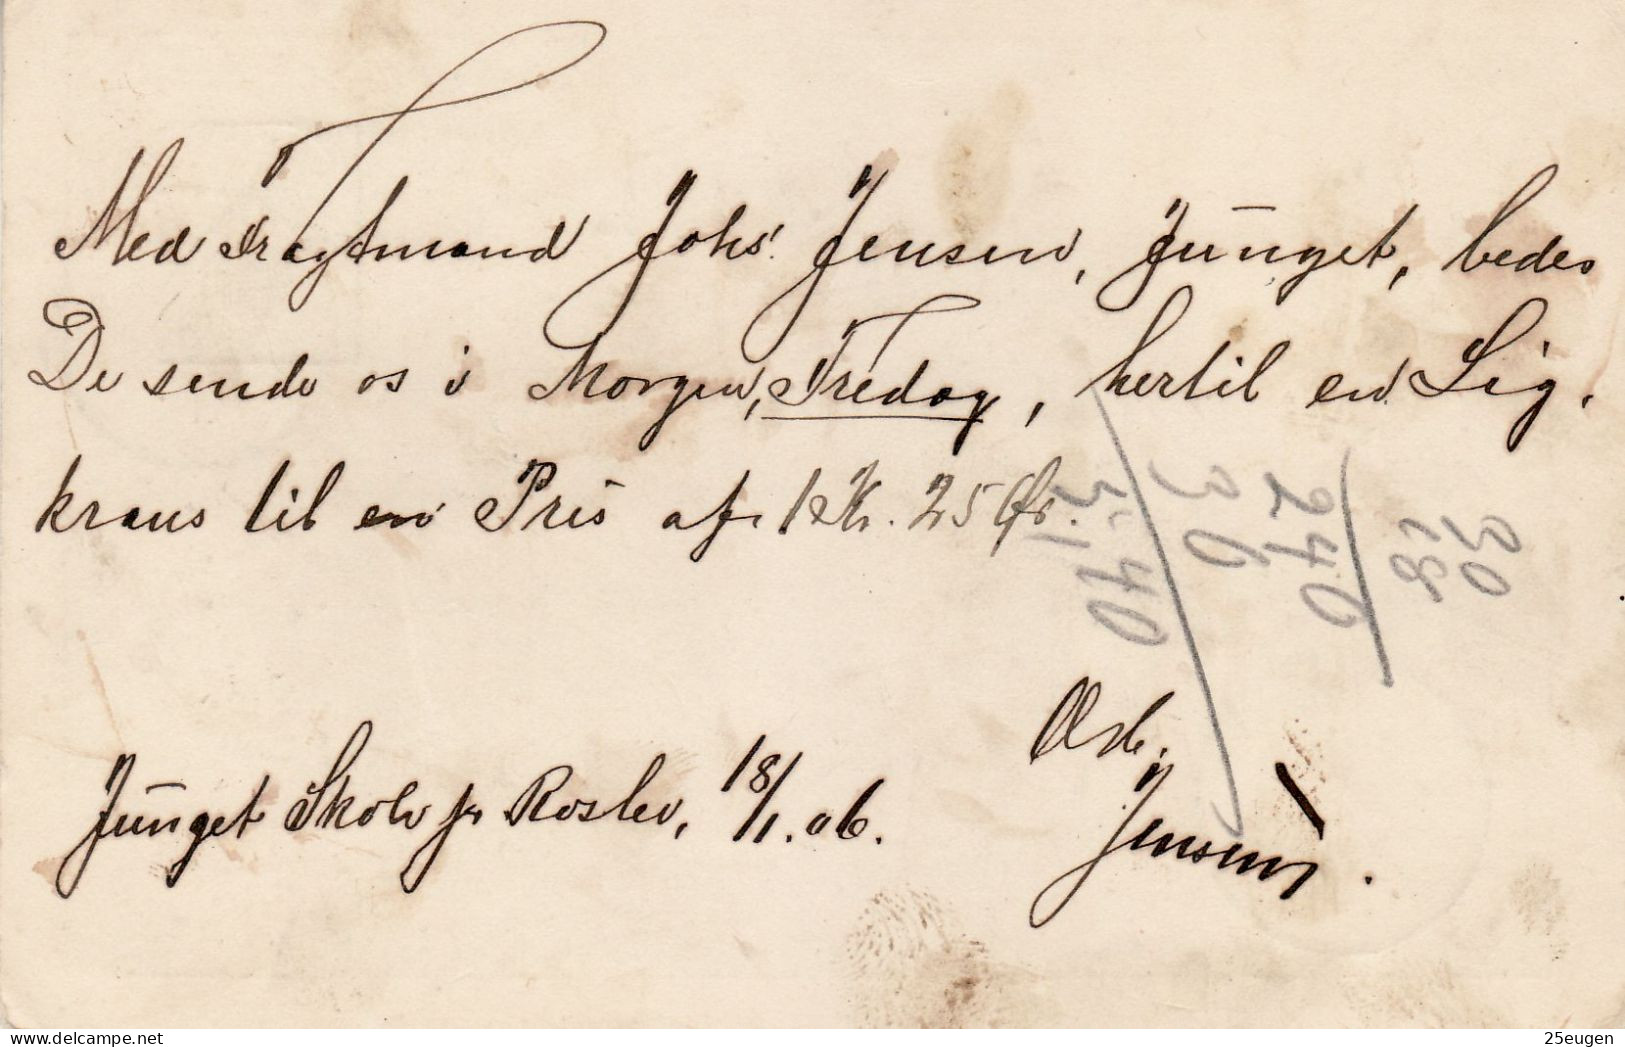 Med Fragtmand Johs. Jensen, Junget, bedes
De sende os i Morgen, Fredag, hertil en Lig-
krans til en Pris af 1 Kr. 25 Ør.
30
18
240
30
5.40
Ærb.
Junget Skole pr Roslev, 18/1.06.
Jensen.
25eugen